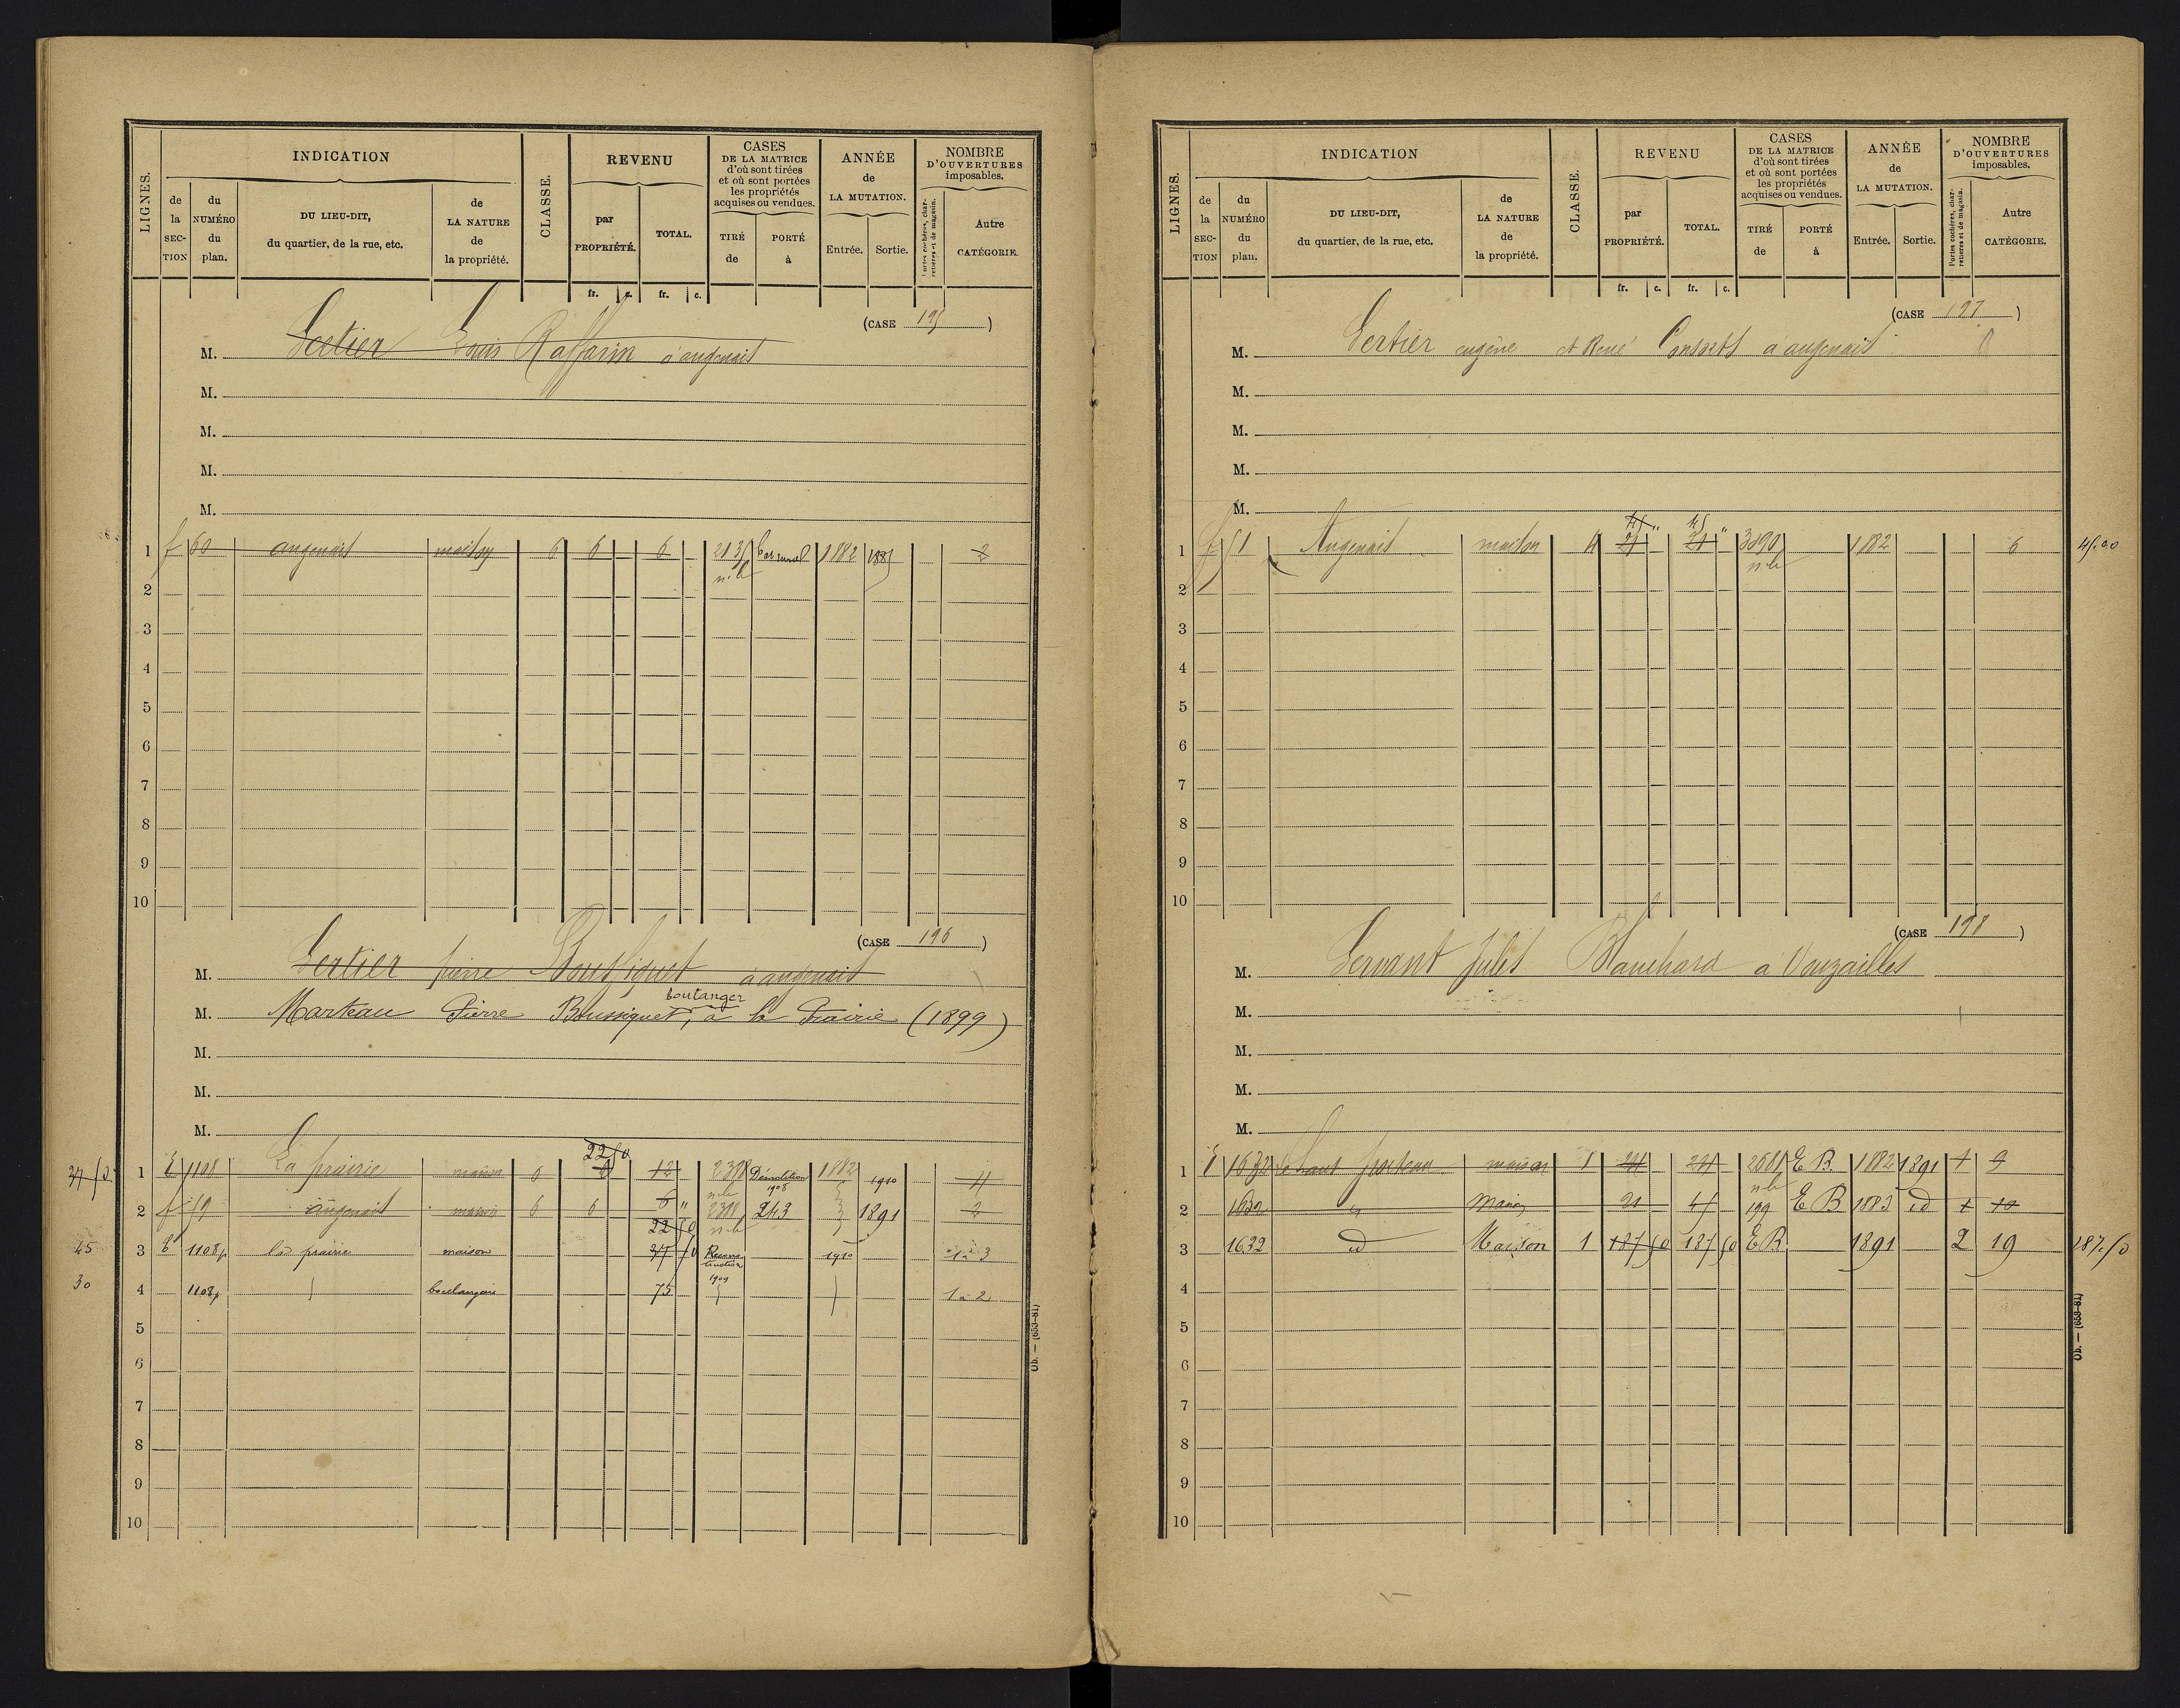 LIGNES. INDICATION CLASSE. REVENU CASES DE LA MATRICE d'où sont tirées et où sont portées les propriétés acquises ou vendues. ANNÉE de LA MUTATION. NOMBRE D'OUVERTURES imposables.
de la SECTION du NUMÉRO du plan. DU LIEU-DIT, du quartier, de la rue, etc. de LA NATURE de la propriété. par PROPRIÉTÉ. TOTAL. TIRÉ de PORTÉ à Entrée. Sortie. Portes cochères, charretières et de magasin. Autre CATÉGORIE.
fr. c. fr. c.
(CASE 195)
M. Sertier Louis Raffarin à augenait
M.
M.
M.
M.
1 f 60 augenait maison 6 6 6 2135 1882 1885 2
n.b
2
3
4
5
6
7
8
9
10
(CASE 196)
M. Sertier pierre Boussiquet à augenait
boulanger
M. Marteau Pierre Boussiquet, à la Prairie (1899)
M.
M.
M.
22 50
37 50 1 E 1108 La prairie maison 6 6 12 2388 Démolition 1908 1882 1910 4
n.b
2 f 59 augenait maison 6 6 6 " 2388 243 } 1891 2
22 50 n.b
45 3 E 1108p la prairie maison 37 50 Reconstruction 1909 1910 1 à 3
30 4 1108p } boulangerie 75 } } 1 à 2
5
6
7
8
9
10
Ob. — (653-81)
LIGNES. INDICATION CLASSE. REVENU CASES DE LA MATRICE d'où sont tirées et où sont portées les propriétés acquises ou vendues. ANNÉE de LA MUTATION. NOMBRE D'OUVERTURES imposables.
de la SECTION du NUMÉRO du plan. DU LIEU-DIT, du quartier, de la rue, etc. de LA NATURE de la propriété. par PROPRIÉTÉ. TOTAL. TIRÉ de PORTÉ à Entrée. Sortie. Portes cochères, charretières et de magasin. Autre CATÉGORIE.
fr. c. fr. c.
(CASE 197)
M. Sertier eugène et René Consorts à augenait
M.
M.
M.
M.
45 " 45 "
1 f 51 Augenait maison 4 21 21 3890 1882 6 45.00
n.b
2
3
4
5
6
7
8
9
10
(CASE 198)
M. Servant Jules Blanchard à Vauzailles
M.
M.
M.
M.
1 E 1632 le haut maison 1 24 24 2681 E B 1882 1891 1 9
n.b
2 1632 id Maison 21 45 199 E B 1883 id 1 10
3 1632 id Maison 1 187 50 187 50 E B 1891 2 19 187.50
4
5
6
7
8
9
10
Ob. — (653-81)